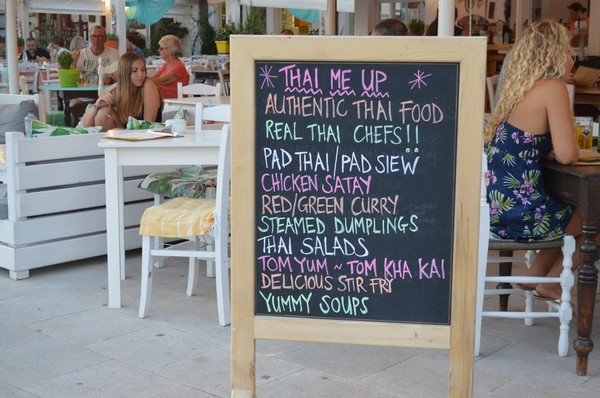 THAI ME UP
AUTHENTIC THAI FOOD
REAL THAI CHEFS!!
PAD THAI/PAD SIEW
CHICKEN SATAY
RED/GREEN CURRY
STEAMED DUMPLINGS
THAI SALADS
TOM YUM ~ TOM KHA KAI
DELICIOUS STIR FRY
YUMMY SOUPS